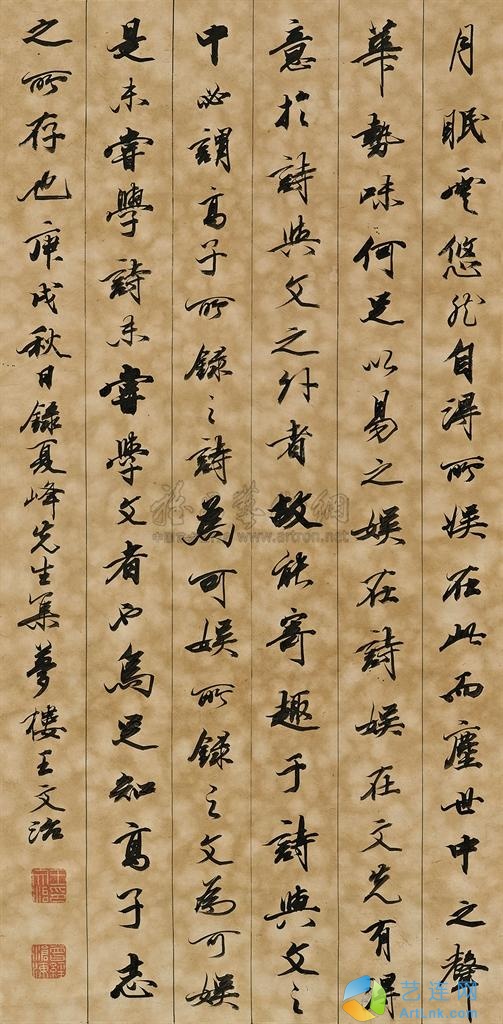 月眠雲悠然自得所娱在此而塵世中之聲
華勢味何足以易之娱在詩娱在文先有得
意於詩與文之外者故能寄趣于詩與文之
中必謂高子所錄之詩為可娱所錄之文為可娱
是未嘗學詩未嘗學文者也烏足知高子志
之所存也庚戌秋日錄夏峰先生集夢樓王文治
雅昌藝術網
artron.net
艺连网
ArtLnk.com